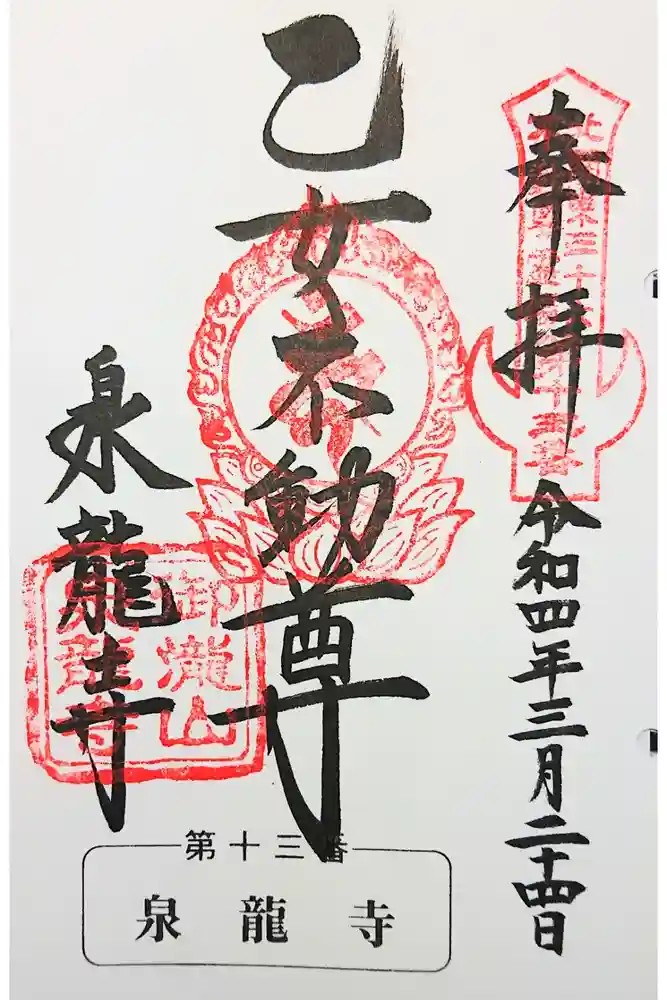 奉拝
令和四年三月二十四日
乙女不動尊
泉龍寺
御瀧山
泉龍寺
第十三番
泉龍寺